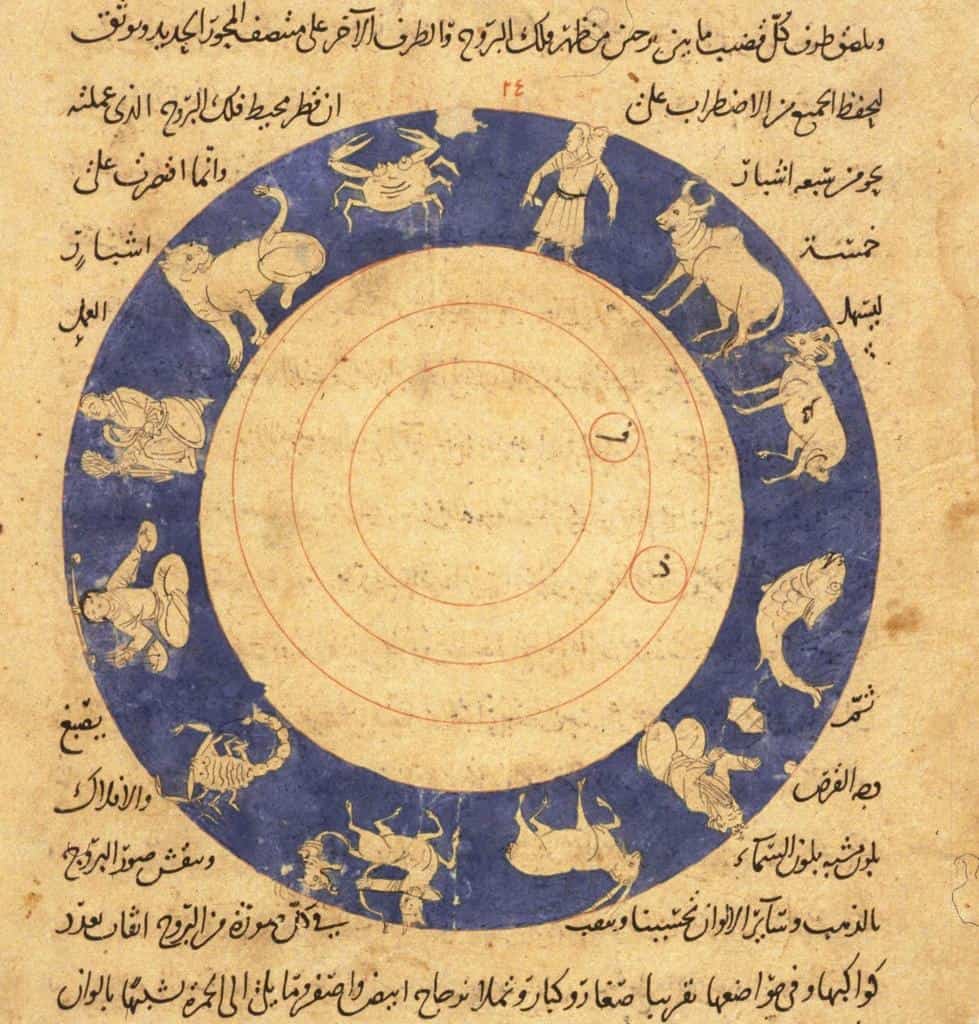 ويلصق طرف كلّ قضيب ما بين برجين من ظهر فلك البروج والطرف الآخر على منتصف المحور الحديد ويوثق
٢٤
ليحفظ الجميع من الاضطراب على ان قطر محيط فلك البروج الذى عملته
نحو من سبعه اشبار وانّما اقتصرت على
خمسة اشبار
ليسهل العمل
فا
ذ
ثمّ يصبّغ
وجه القرص والافلاك
بلون مشبه بلون السّماء وينقش صور البروج
بالذهب وسآئر الالوان تحسينا ويثقب في كل صورة من البروج اثقاب بعدد
كواكبها وفى مواضعها تقريبا صغار وكبار وتملا زجاج ابيض واصفر وما يلى الى الحمرة بالوان